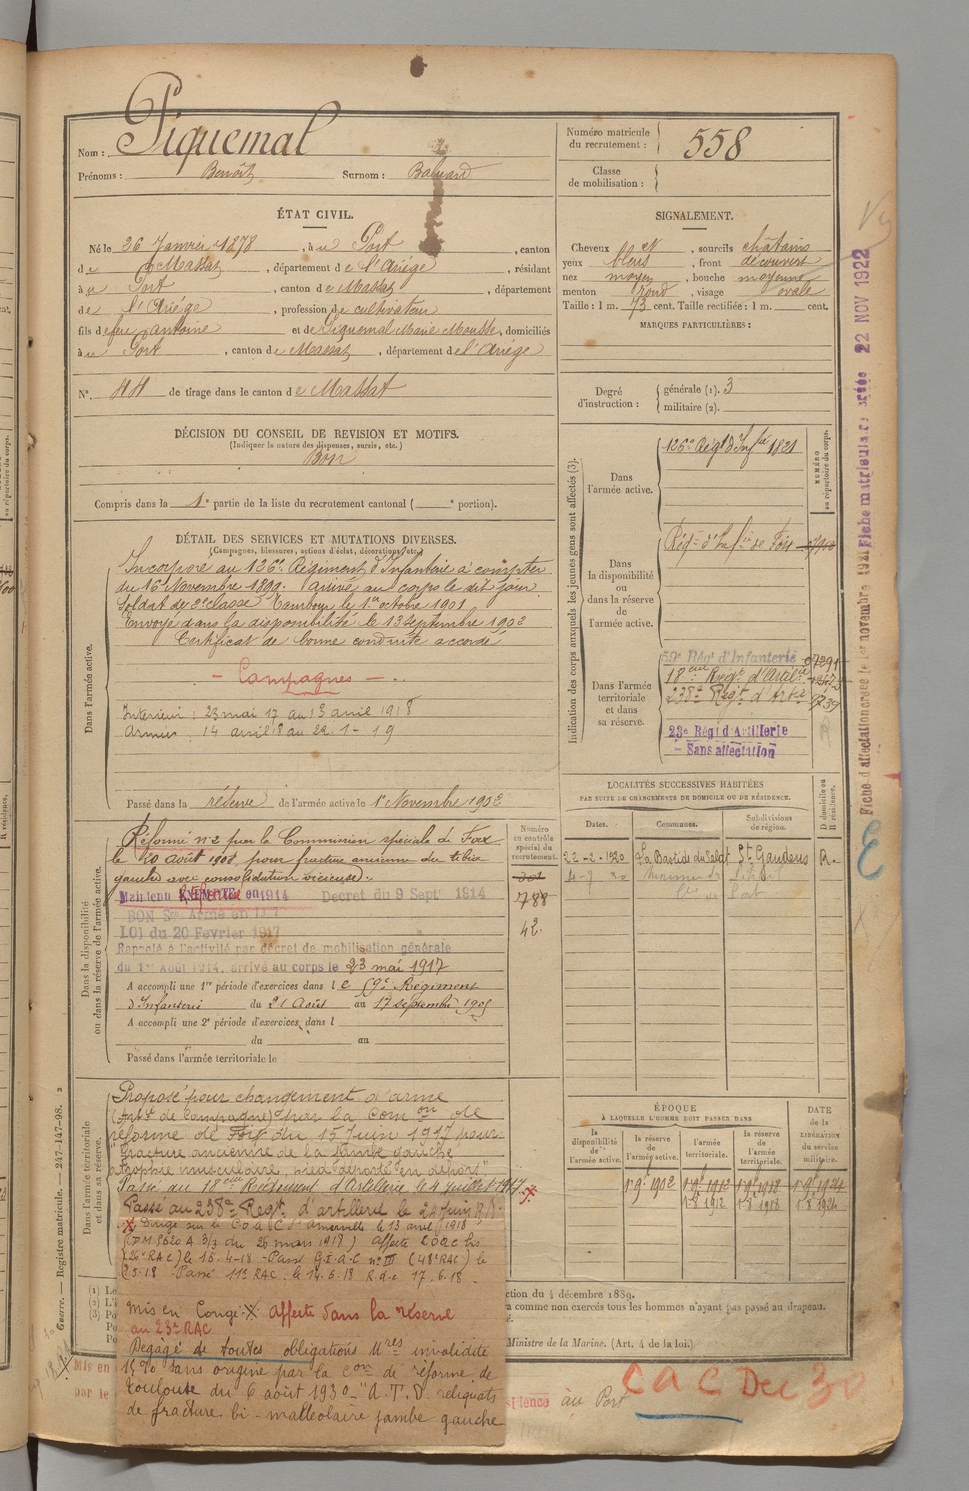 Nom : Piquemal
Prénoms : Benoît Surnom : Baluard
Numéro matricule du recrutement : 558
Classe de mobilisation :
ÉTAT CIVIL.
Né le 26 Janvier 1878, à u Port, canton
de Massat, département de l'Ariége, résidant
à u Port, canton de Massat, département
de l'Ariége, profession de cultivateur
fils de feu Antoine et de Piquemal Marie Mousse, domiciliés
à u Port, canton de Massat, département de l'Ariége
N° 44 de tirage dans le canton de Massat
SIGNALEMENT.
Cheveux N, sourcils châtains
yeux bleus, front découvert
nez moyen, bouche moyenne
menton rond, visage ovale
Taille : 1 m. 73 cent. Taille rectifiée : 1 m. cent.
MARQUES PARTICULIÈRES :
Degré d'instruction : générale (1). 3
militaire (2).
DÉCISION DU CONSEIL DE REVISION ET MOTIFS.
(Indiquer la nature des dispenses, sursis, etc.)
Bon
Compris dans la 1e partie de la liste du recrutement cantonal ( e portion).
DÉTAIL DES SERVICES ET MUTATIONS DIVERSES.
(Campagnes, blessures, actions d'éclat, décorations, etc.)
Dans l'armée active.
Incorporé au 126e Régiment d'Infanterie à compter
du 16 Novembre 1899. Arrivé au corps le dit jour
Soldat de 2e classe Tambour le 1er octobre 1901
Envoyé dans la disponibilité le 13 septembre 1902
Certificat de bonne conduite accordé
- Campagnes -
Interieur : 23 mai 17 au 13 avril 1918
Armées : 14 avril 18 au 22-1-19
Passé dans la réserve de l'armée active le 1er Novembre 1902
Indication des corps auxquels les jeunes gens sont affectés (3).
NUMÉRO au répertoire du corps.
Dans l'armée active.
126e Régt d'Infie 1821
Dans la disponibilité ou dans la réserve de l'armée active.
Régt d'Infie de Foix
Dans l'armée territoriale et dans sa réserve.
59e Régt d'Infanterie 07291
18eme Régt d'Artilie
238e Régt d'Artie
23e Régt d'Artillerie
- Sans affectation
Dans la disponibilité ou dans la réserve de l'armée active.
Numéro au contrôle spécial du recrutement.
Réformé n°2 par la Commission spéciale de Foix
le 20 août 1908 pour fracture ancienne du tibia
gauche avec consolidation vicieuse.
Maintenu Réformé en 1914 Decret du 9 Septe 1914
788
BON Sce Armé en
LOI du 20 Fevrier 1917
42
Rappelé à l'activité par décret de mobilisation générale
du 1er Août 1914, arrivé au corps le 23 mai 1917
A accompli une 1re période d'exercices dans l e 59e Régiment
d'Infanterie du 21 Août au 17 septembre 1905
A accompli une 2e période d'exercices dans l
du au
Passé dans l'armée territoriale le
LOCALITÉS SUCCESSIVES HABITÉES
PAR SUITE DE CHANGEMENTS DE DOMICILE OU DE RÉSIDENCE.
Dates. Communes. Subdivisions de région. D domicile ou R résidence.
22-2-1920 La Bastide du Salat St Gaudens R.
Dans l'armée territoriale et sa réserve.
Proposé pour changement d'arme
(Artie de Campagne) par la Comon de
réforme de Foix du 15 Juin 1917 pour
"Fracture ancienne de la jambe gauche
atrophie musculaire, pied déporté en dehors"
Passé au 18eme Régiment d'Artillerie le 4 juillet 1917
Passé au 238e Régt d'artillerie le
mis en Congé X affecté dans la réserve
au 23e RAC
Dégagé de toutes obligations Mres invalidité
15% sans origine par la Con de réforme de
Toulouse du 6 août 1930 - "A.T.D. reliquats
de fracture bi-malléolaire jambe gauche
ÉPOQUE
À LAQUELLE L'HOMME DOIT PASSER DANS
DATE DE LA LIBÉRATION du service militaire.
la disponibilité de l'armée active. la réserve de l'armée active. l'armée territoriale. la réserve de l'armée territoriale.
1.9bre 1902 1.9bre 1912 1.9bre 1918 1.9bre 1924
1.8 1912 1.8 1918 1.8 1924
ction du 4 décembre 1889.
a comme non exercés tous les hommes n'ayant pas passé au drapeau.
Ministre de la Marine. (Art. 4 de la loi.)
Guerre. — Registre matricule. — 247-147-98. 2
Mis en
par le
au Port
22 NOV 1922
E